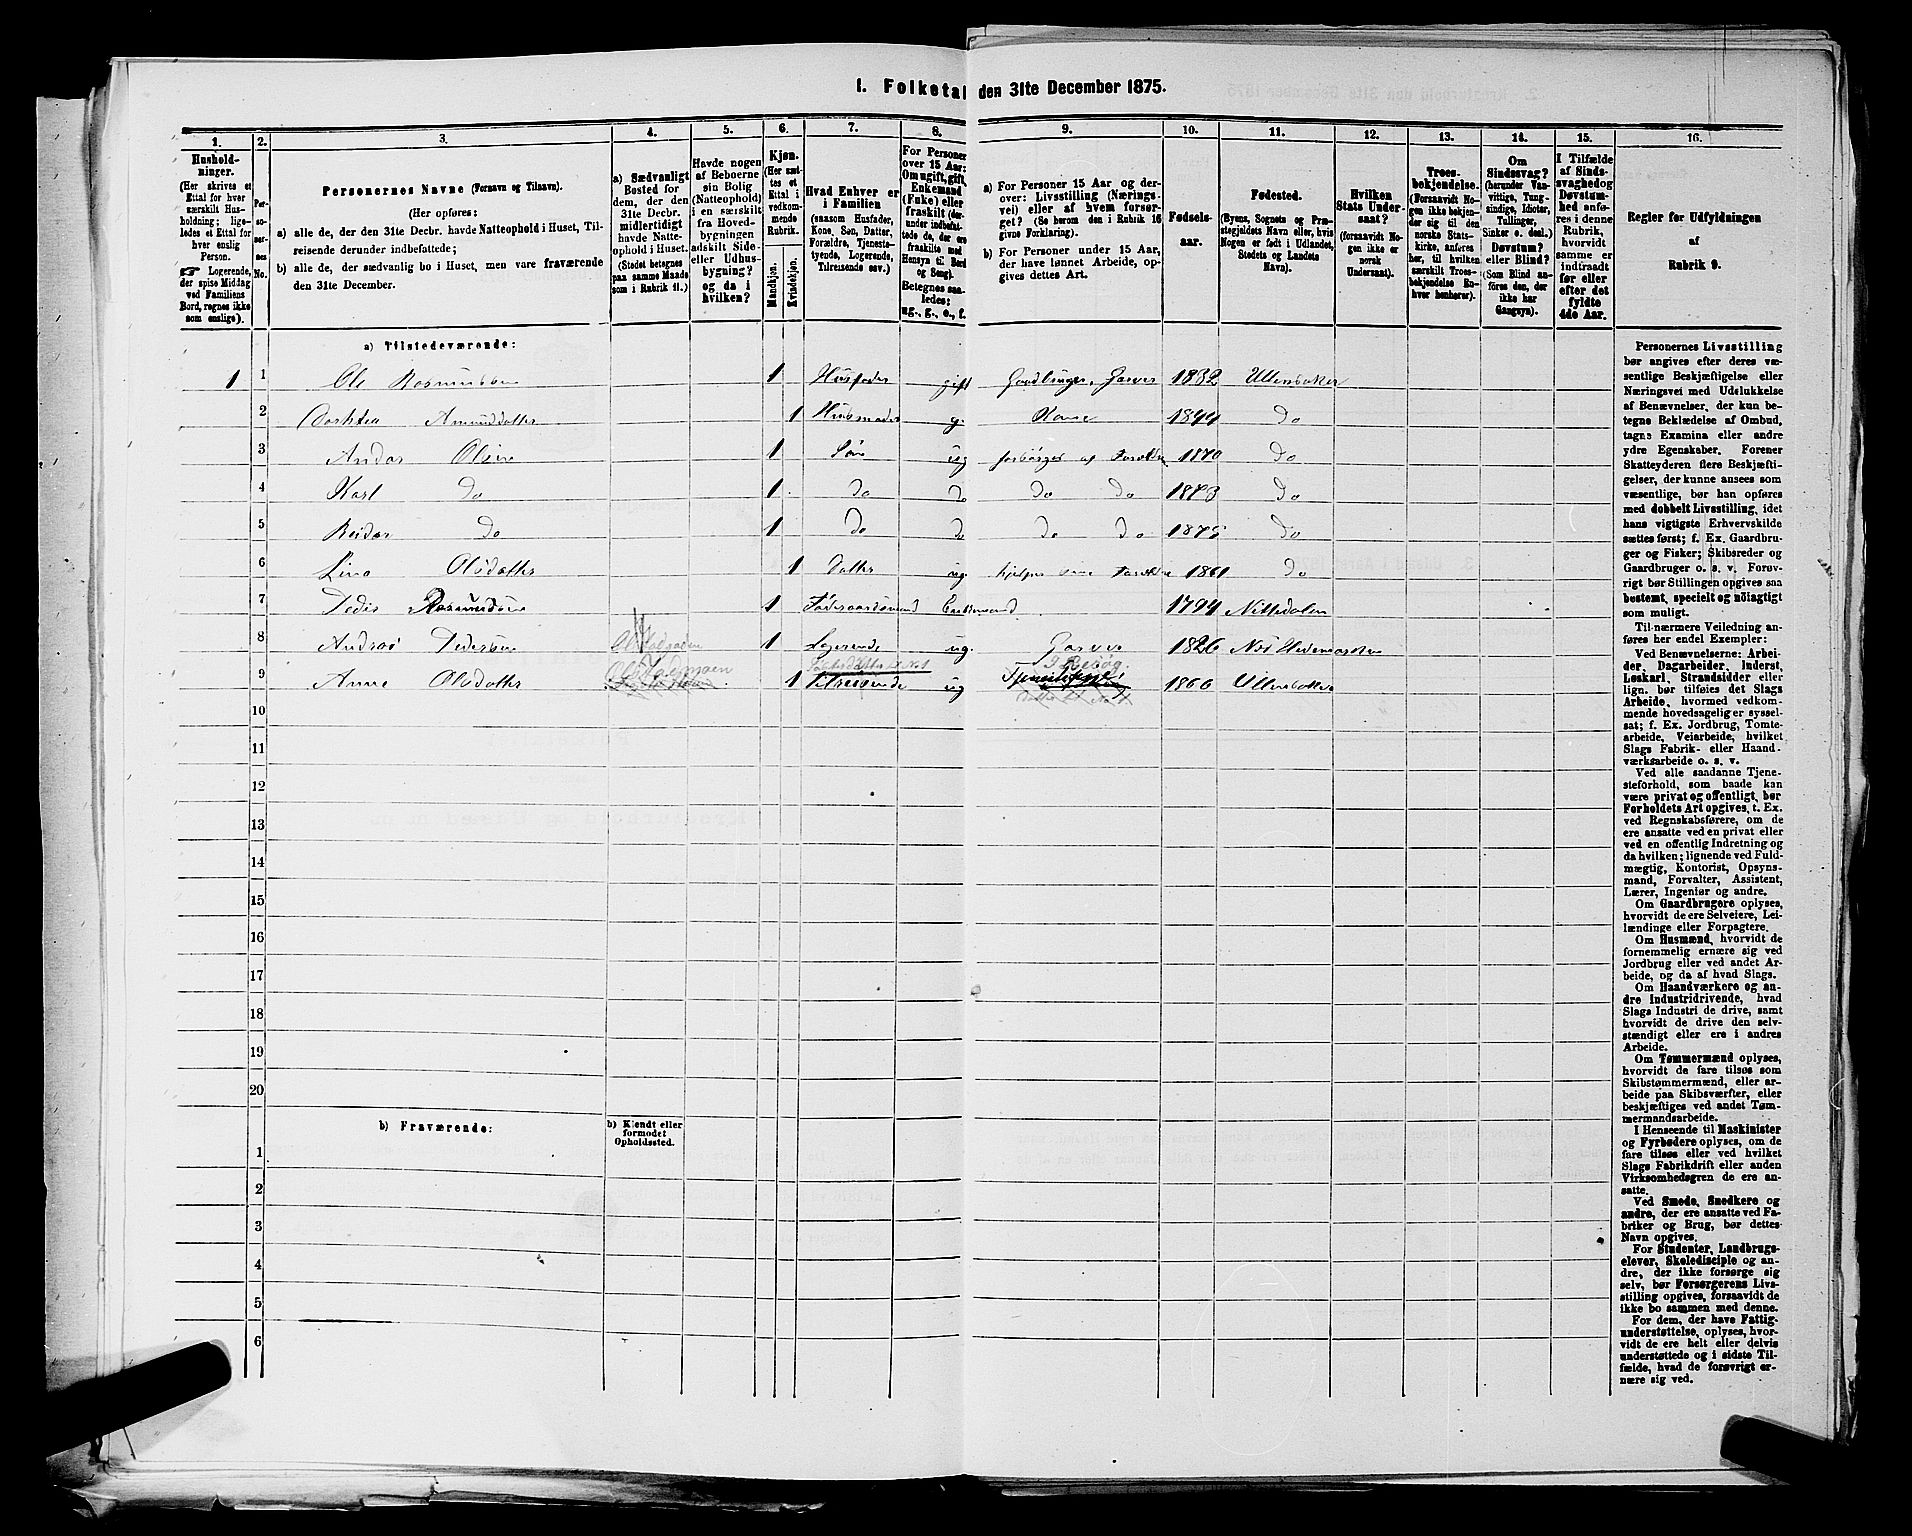 1. Folketal den 31te December 1875.
1. 2. 3. 4. 5. 6. 7. 8. 9. 10. 11. 12. 13. 14. 15. 16.
Hushold-
ninger.
(Her skrives et
Ettal for hver
særskilt Hus-
holdning; lige-
ledes et Ettal for
hver enslig
Person.
☞ Logerende,
der spise Middag
ved Familiens
Bord, regnes ikke
som enslige).
Per-
so-
ner-
nes
No.
Personernes Navne (Fornavn og Tilnavn).
(Her opføres:
a) alle de, der den 31te Decbr. havde Natteophold i Huset, Til-
reisende derunder indbefattede;
b) alle de, der sædvanlig bo i Huset, men vare fraværende
den 31te December.
a) Sædvanligt
Bosted for
dem, der den
31te Decbr.
midlertidigt
havde Natte-
ophold i Huset.
(Stedet betegnes
paa samme Maade
som i Rubrik 11.)
Havde nogen
af Beboerne
sin Bolig
(Natteophold)
i en særskilt
fra Hoved-
bygningen
adskilt Side-
eller Udhus-
bygning?
og da i
hvilken?
Kjøn.
(Her sæt-
tes et
Ettal i
vedkom-
mende
Rubrik.
Mandkjøn.
Kvindekjøn.
Hvad Enhver er
i Familien
(saasom Husfader,
Kone, Søn, Datter,
Forældre, Tjeneste-
tyende, Logerende,
Tilreisende osv.)
For Personer
over 15 Aar:
Om ugift, gift,
Enkemand
(Enke) eller
fraskilt (der-
under indbefat-
tede de, der ere
fraskilte med
Hensyn til Bord
og Seng).
Betegnes saa-
ledes:
ug., g., e., f.
a) For Personer 15 Aar og der-
over: Livsstilling (Nærings-
vei) eller af hvem forsør-
get? (Se herom den i Rubrik 16
givne Forklaring).
b) For Personer under 15 Aar,
der have lønnet Arbeide, op-
gives dettes Art.
Fødsels-
aar.
Fødested.
(Byens, Sognets og Præ-
stegjeldets Navn eller, hvis
Nogen er født i Udlandet,
Stedets og Landets
Navn).
Hvilken
Stats Under-
saat?
(forsaavidt No-
gen ikke er
norsk
Undersaat).
Troes-
bekjendelse.
(Forsaavidt No-
gen ikke bekjen-
der sig til den
norske Stats-
kirke, anføres
her, til hvilken
særskilt Troes-
bekjendelse En-
hver henhører).
Om
Sindssvag?
(herunder Van-
vittige, Tung-
sindige, Idioter,
Tullinger,
Sinker o. desl.)
Døvstum?
eller Blind?
(Som Blind an-
føres den, der
ikke har
Gangsyn).
I Tilfælde
af Sinds-
svaghed og
Døvstum-
hed anfø-
res i denne
Rubrik,
hvorvidt
samme er
indtraadt
før eller
efter det
fyldte
4de Aar.
Regler for Udfyldningen
af
Rubrik 9.
a) Tilstedeværende:
1 1 Ole Rasmussen 1 Husfader gift Gaardbruger, Garver 1832 Ullensaker
2 Amundsdatter 1 Husmoder g. Kone 1844 Do
3 Olsen 1 Søn ug forsørges af Forældre 1870 Do
4 Karl Do 1 Do Do Do Do 1873 Do
5 Reidar Do 1 Do Do Do Do 1875 Do
6 Lina Olsdatter 1 Datter ug. hjelper sine Forældre 1861 Do
7 Peder 1 Føderaadsmand Enkemand 1794 Nittedalen
8 Andreas Pedersen 1 Logerende ug. Garver 1826
9 Anne Olsdatter 1 Tilreisende ug 1860 Ullensaker
10
11
12
13
14
15
16
17
18
19
20
b) Fraværende:
b) Kjendt eller
formodet
Opholdssted.
1
2
3
4
5
6
Personernes Livsstilling
bør angives efter deres væ-
sentlige Beskjæftigelse eller
Næringsvei med Udslukkelse
af Benævnelser, der kun be-
tegne Beklædelse af Ombud,
tagne Examina eller andre
ydre Egenskaber. Forener
Skatteyderen flere Beskjæfti-
gelser, der kunne ansees som
væsentlige, bør han opføres
med dobbelt Livsstilling, idet
hans vigtigste Erhvervskilde
sættes først; f. Ex. Gaardbru-
ger og Fisker; Skibsreder og
Gaardbruger o. s. v. Forøv-
rigt bør Stillingen opgives saa
bestemt, specielt og nøiagtigt
som muligt.
Til nærmere Veiledning an-
føres her endel Exempler:
Ved Benævnelserne: Arbei-
der, Dagarbeider, Inderst,
Løskarl, Strandsidder eller
lign. bør tilføies det Slags
Arbeide, hvormed vedkom-
mende hovedsagelig er syssel-
sat; f. Ex. Jordbrug, Tomte-
arbeide, Veiarbeide, hvilket
Slags Fabrik- eller Haand-
værksarbeide o. s. v.
Ved alle saadanne Tjene-
steforhold, som baade kan
være privat og offentligt, bør
Forholdets Art opgives, t. Ex.
ved Regnskabsførere, om de
ere ansatte ved en privat eller
ved en offentlig Indretning og
da hvilken; lignende ved Fuld-
mægtig, Kontorist, Opsyns-
mand, Forvalter, Assistent,
Lærer, Ingeniør og andre.
Om Gaardbrugere oplyses,
hvorvidt de ere Selveiere, Lei-
lændinge eller Forpagtere.
Om Husmænd, hvorvidt de
fornemmelig ernære sig ved
Jordbrug eller ved andet Ar-
beide, og da af hvad Slags.
Om Haandværkere og an-
dre Industridrivende, hvad
Slags Industri de drive, samt
hvorvidt de drive den selv-
stændigt eller ere i andres
Arbeide.
Om Tømmermænd oplyses,
hvorvidt de fare tilsøs som
Skibstømmermænd, eller ar-
beide paa Skibsværfter, eller
beskjæftiges ved andet Tøm-
mermandsarbeide.
I Henseende til Maskinister
og Fyrbødere oplyses, om de
fare tilsøs eller ved hvilket
Slags Fabrikdrift eller anden
Virksomhedsgren de ere an-
satte.
Ved Smede, Snedkere og
andre, der ere ansatte ved Fa-
briker og Brug, bør dettes
Navn opgives.
For Studenter, Landbrugs-
elever, Skoledisciple og an-
dre, der ikke forsørge sig
selv, bør Forsørgerens Livs-
stilling opgives, forsaavidt de
ikke bo sammen med denne.
For dem, der have Fattig-
understøttelse, oplyses, hvor-
vidt de ere helt eller delvis
understøttede og i sidste Til-
fælde, hvad de forøvrigt er-
nære sig ved.